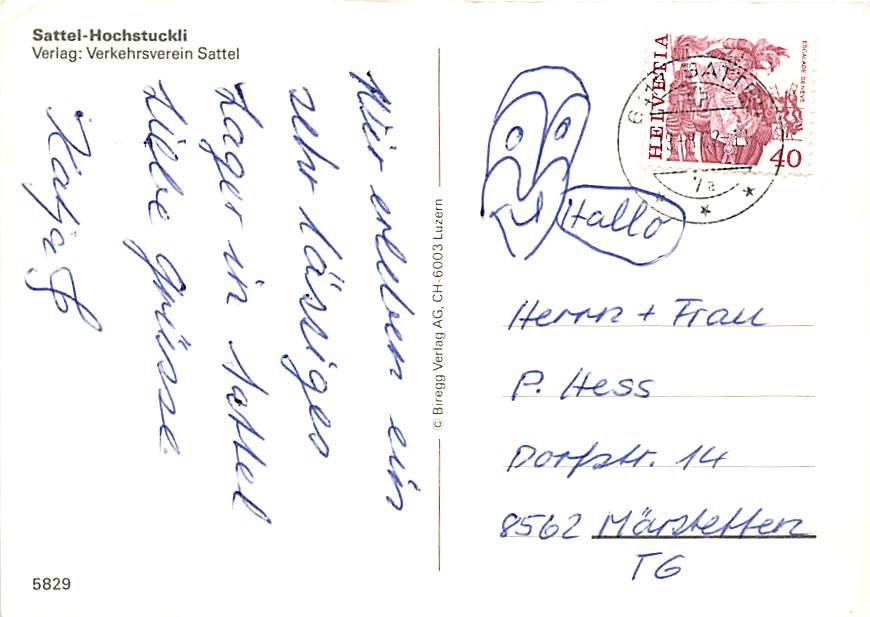 Sattel-Hochstuckli
Verlag: Verkehrsverein Sattel
Wir erleben ein
sehr lässiges
Lager in Sattel
Liebe Grüsse
Katja
© Biregg Verlag AG, CH-6003 Luzern
5829
HELVETIA
ESCALADE GENÈVE
40
SATTEL
Hallo
Herrn + Frau
P. Hess
Dorfstr. 14
8562 Märstetten
TG